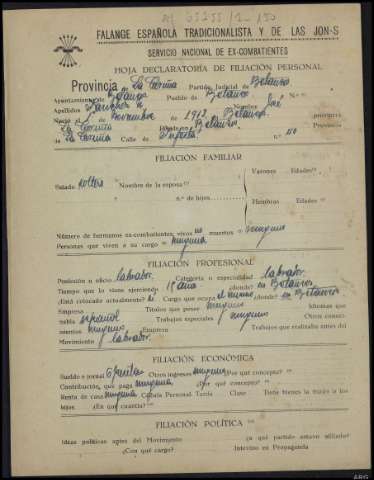 FALANGE ESPAÑOLA TRADICIONALISTA Y DE LAS JON-S
SERVICIO NACIONAL DE EX-COMBATIENTES
HOJA DECLARATORIA DE FILIACIÓN PERSONAL
Provincia La Coruña Partido Judicial de Betanzos
Ayuntamiento de Betanzos Pueblo de Betanzos N.º
Apellidos Sánchez Nombre José
Nació el Noviembre de 1912 Betanzos provincia
La Coruña Betanzos Provincia
La Coruña Calle de n.º
FILIACIÓN FAMILIAR
Varones Edades?
Estado soltero Nombre de la esposa?
n.º de hijos Hembras Edades?
Número de hermanos ex-combatientes vivos no muertos o ninguno
Personas que viven a su cargo ninguna
FILIACIÓN PROFESIONAL
Profesión u oficio labrador. Categoría o especialidad labrador.
Tiempo que lo viene ejerciendo 15 años ¿dónde? en Betanzos
¿Está colocado actualmente? Si Cargo que ocupa el mismo ¿dónde? en Betanzos
Empresa Títulos que posee ninguno Idiomas que
habla español Trabajos especiales ninguno Otros conoci-
mientos ninguno Empresa Trabajos que realizaba antes del
Movimiento labrador.
FILIACIÓN ECONÓMICA
Sueldo o jornal Otros ingresos ninguno ¿Por qué concepto?
Contribución, qué paga ninguna ¿Por qué concepto?
Renta de casa ninguna Cédula Personal Tarifa Clase Tiene bienes la mujer o los
hijos ¿En qué cuantía?
FILIACIÓN POLÍTICA
Ideas políticas antes del Movimiento ¿a qué partido estuvo afiliado?
¿Con qué cargo? Intervino en Propaganda